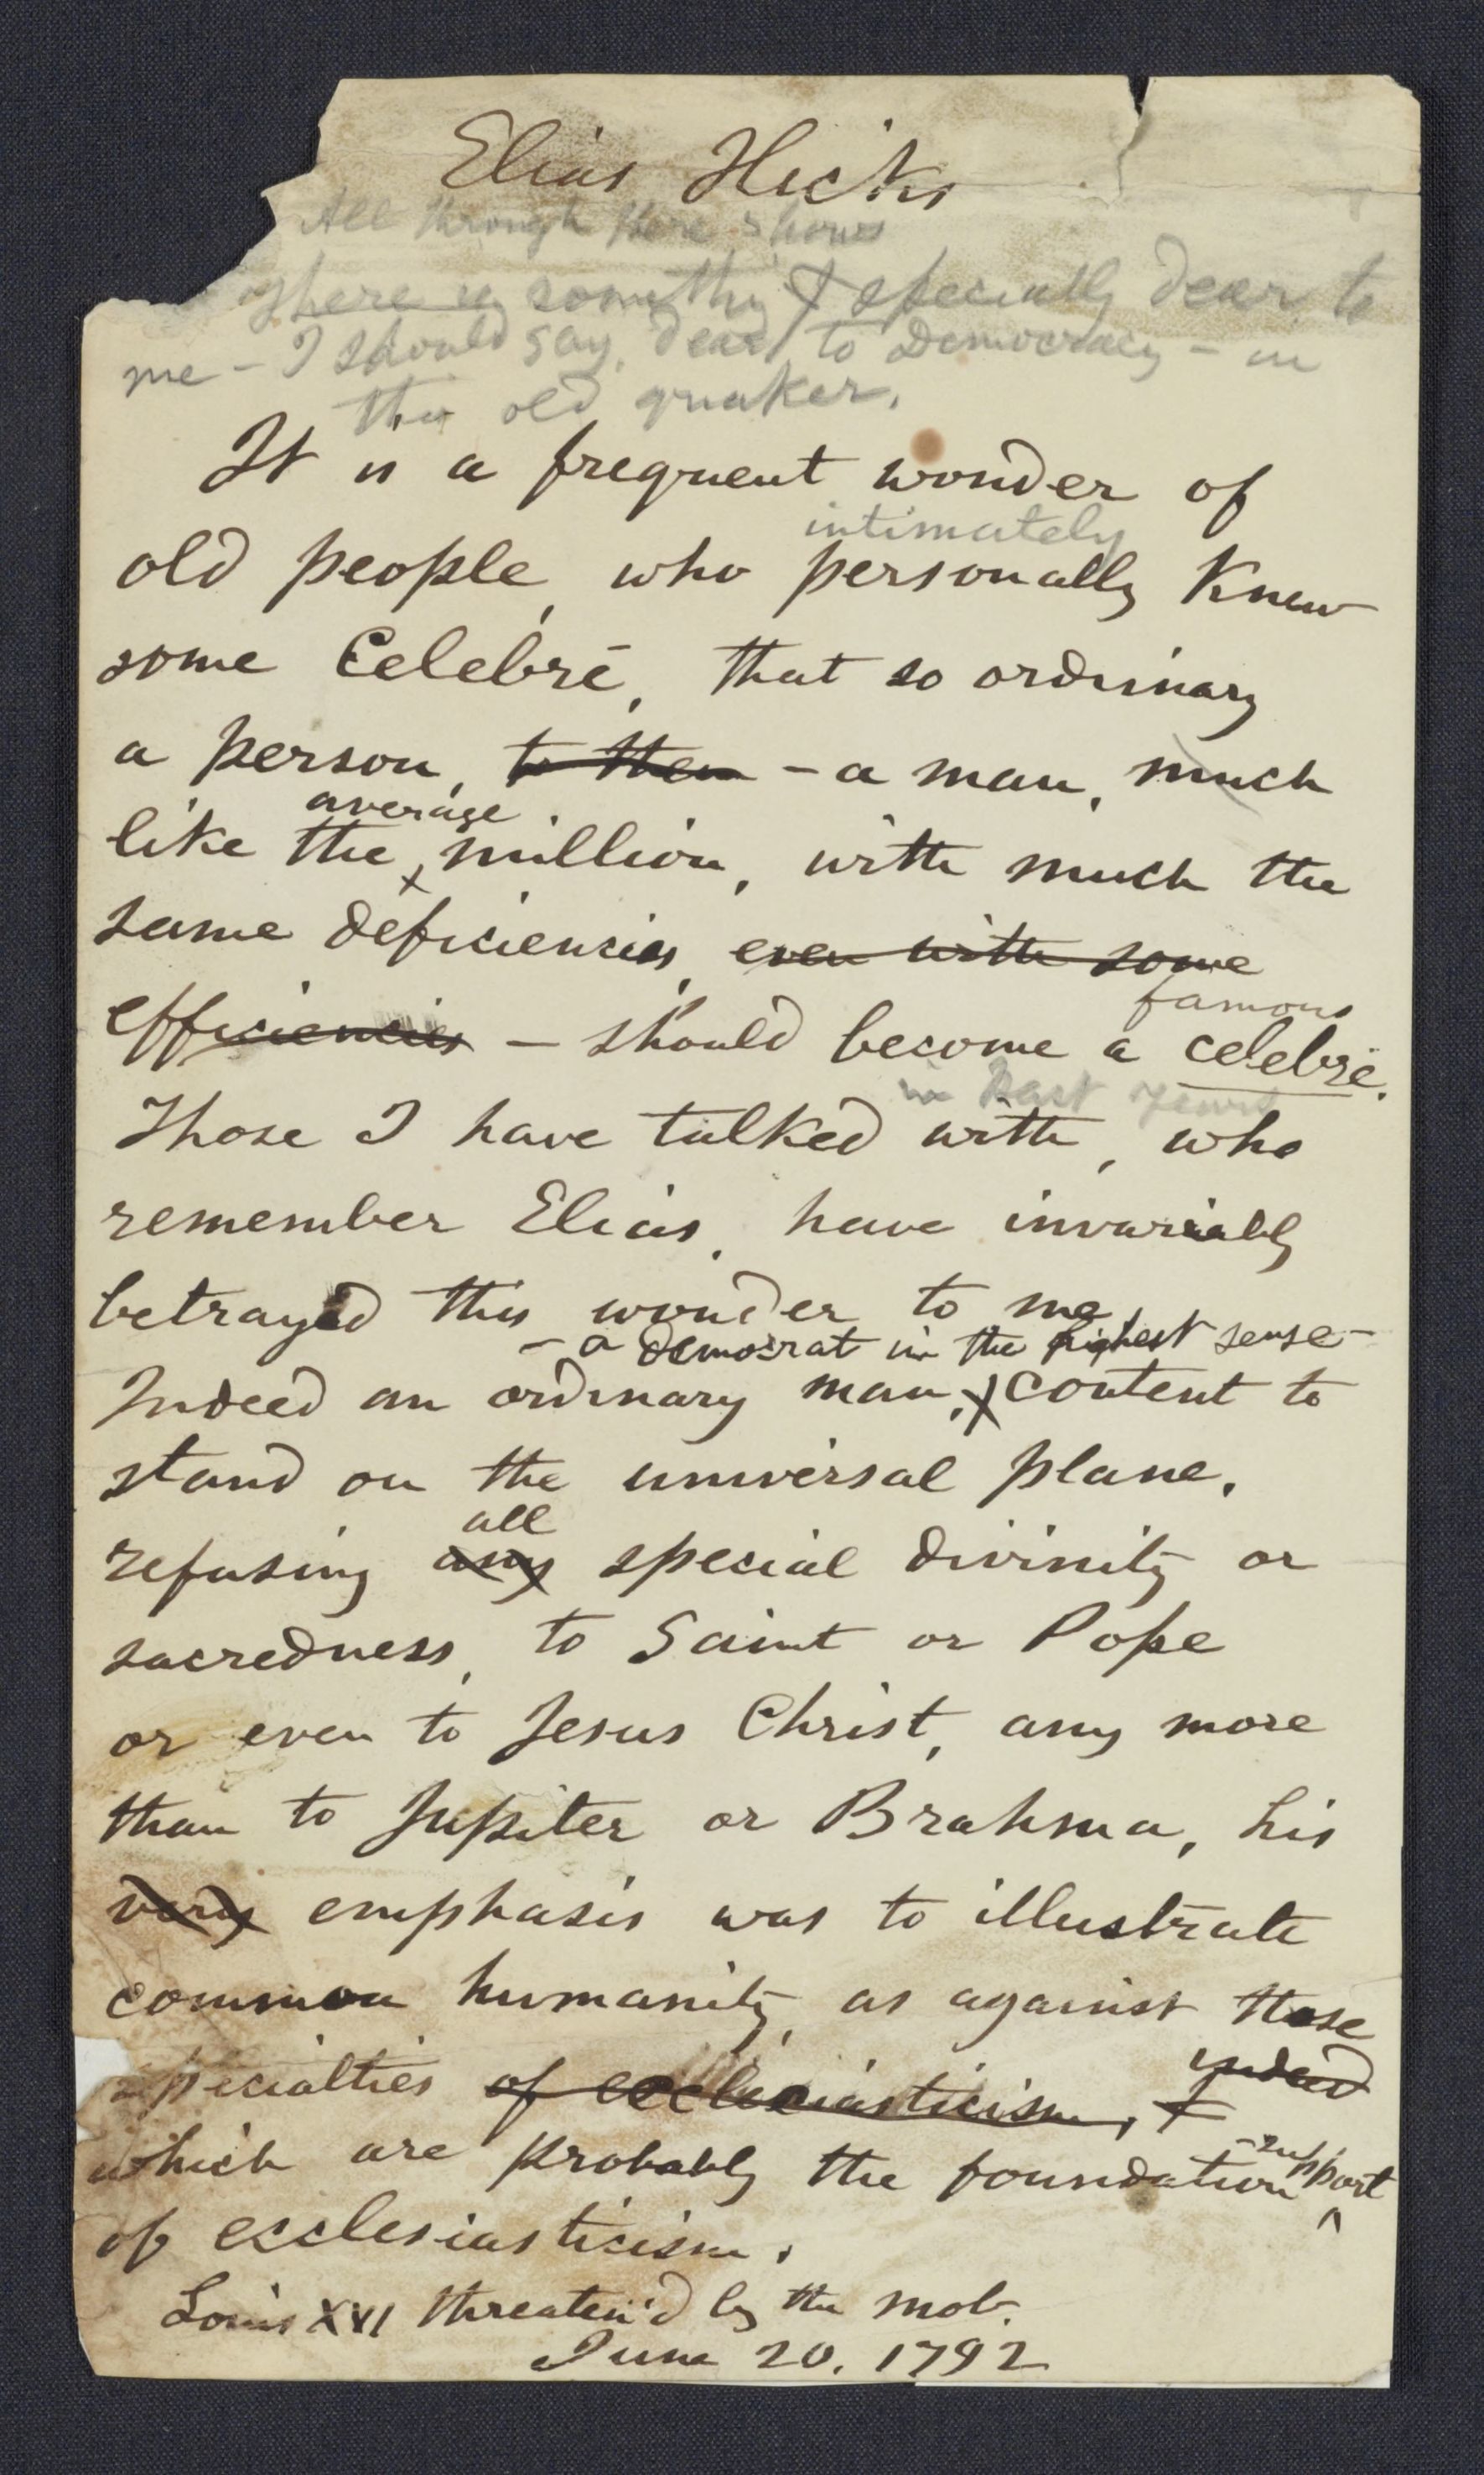 Elias Hicks
All through there shows
there is somethg specially dear to
me – I should say, dear to Democracy – in
this old quaker.
It is a frequent wonder of
intimately
old people, who personally Knew
some Celebré, that so ordinary
a person, to them – a man, much
average
like the million, with much the
same deficiencies, even with some
famous
efficiencies – should become a celebré.
in past years
Those I have talked with, who
remember Elias, have invariably
betrayed this wonder to me
– a democrat in the highest sense –
Indeed an ordinary man, content to
stand on the universal plane,
all
refusing any special divinity or
sacredness, to Saint or Pope
or even to Jesus Christ, any more
than to Jupiter or Brahma, his
very emphasis was to illustrate
common humanity, as against those
indeed
specialties of ecclesiasticism, &
support
which are probably the foundation-
of ecclesiasticism.
Louis XVI threaten'd by the mob.
June 20. 1792